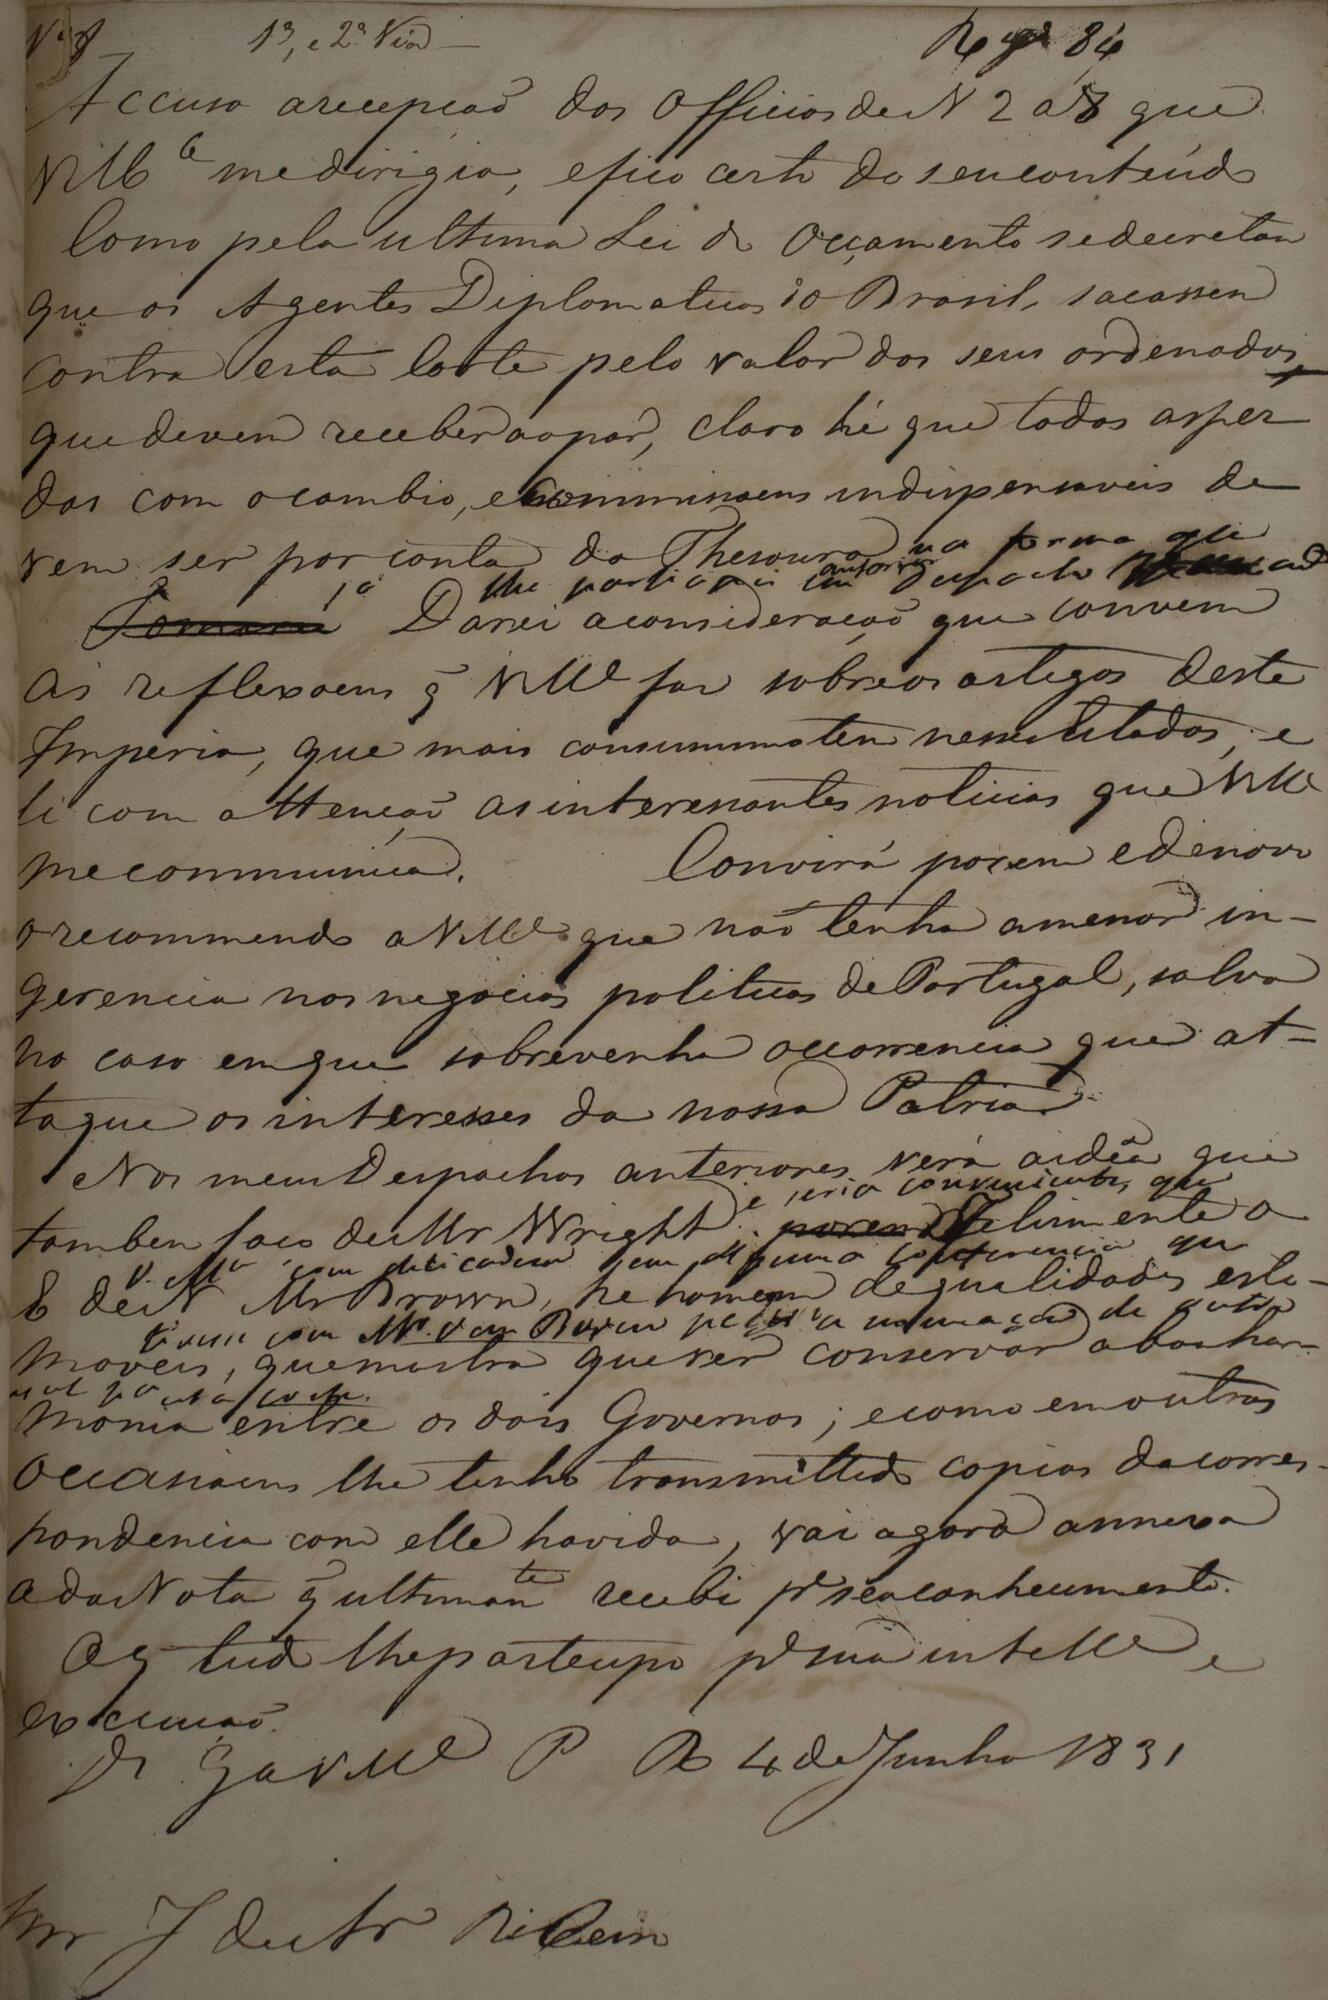 Nº 8 1ª, e 2ª Via Reg.do 84
Accuso a recepção dos Officios de N 2 a 8 que
V Mce me dirigio, e fico certo do seu contéudo
Como pela ultima Lei de Orçamento se decretou
que os Agentes Diplomaticos do Brasil, sacassem
contra esta Corte pelo valor dos seus ordenados,
que devem receber ao par, claro hé que todas as per
das com o cambio, e Commissoens indispensaveis de
vem ser por conta do Thesouro na forma que
já lhe participei em Despacho anterior
Darei a consideração que convem
ás reflexoens q̃ V Mce faz sobre os artigos deste
Imperio, que mais consummo tem nesses Estados, e
li com attenção as interessantes noticias que V Mce
me communica. Convirá porem e de novo
o recommendo a V Mce que não tenha a menor in-
gerencia nos negocios politicos de Portugal, salvo
no caso em que sobrevenha occorrencia que at-
taque os interesses da nossa Patria
Nos meus Despachos anteriores verá a idéa que
e seria conveniente que
tambem faço de Mr Wright
V. Mce com delicadeza em alguma conferencia que
Mr Brown, he homem de qualidades esti-
tivesse com Mr. Van Buren de outro
maveis, que mostra querer conservar a boa har-
pa esta Corte.
monia entre os dois Governos; e como em outras
occasioens lhe tenho transmittido copias da corres-
pondencia com elle havida, vai agora annexa
a da Nota q̃ ultimamte recebi pa seu conhecimento.
O q̃ tudo lhe participo pa sua intellca e
execução.
Ds Ge a V Mce P R 4 de Junho 1831